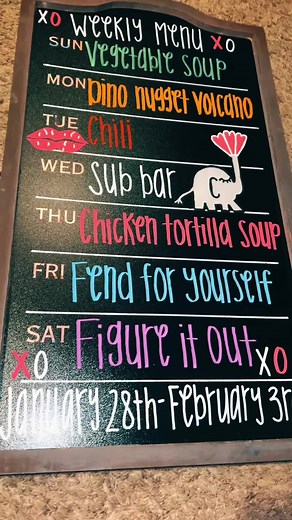 XO Weekly Menu XO
SUN Vegetable soup
MON Dino nugget volcano
TUE Chili
WED Sub bar
THU Chicken tortilla soup
FRI Fend for yourself
SAT Figure it out
XO XO
January 28th-February 3r